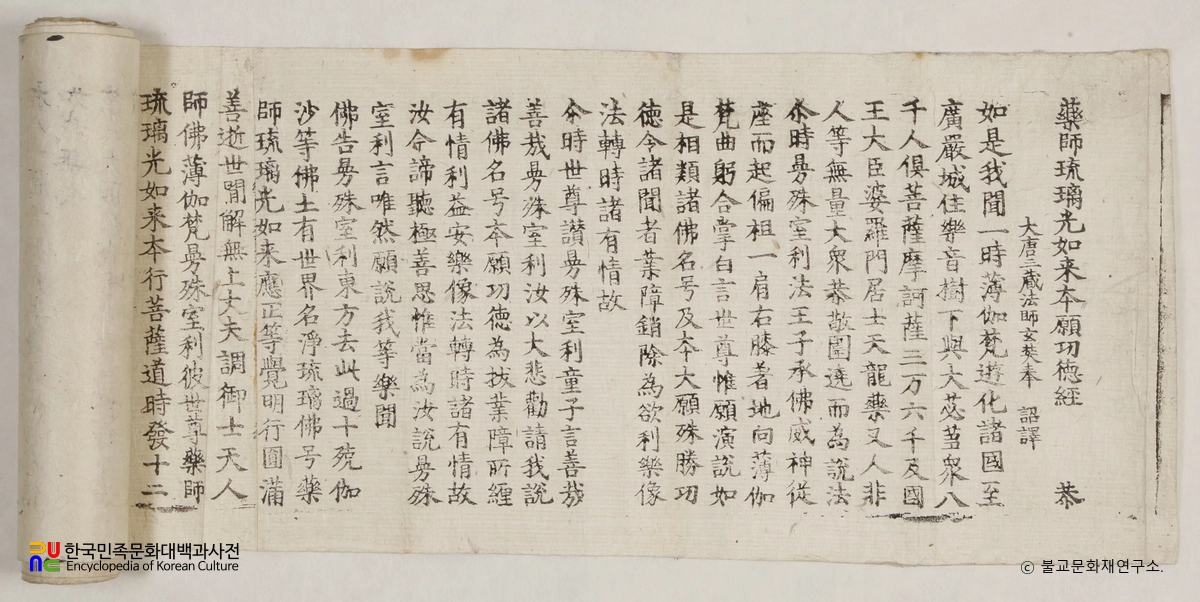 藥師琉璃光如来夲願功徳經 恭
大唐三蔵法師玄奘奉 詔譯
如是我聞一時薄伽梵遊化諸國至
廣嚴城住樂音樹下與大苾芻衆八
千人俱菩薩摩訶薩三万六千及國
王大臣婆羅門居士天龍藥叉人非
人等無量大衆恭敬圍遶而為說法
尒時曼殊室利法王子承佛威神従
座而起偏袒一肩右膝著地向薄伽
梵曲躬合掌白言世尊惟願演說如
是相類諸佛名号及夲大願殊勝功
徳令諸聞者業障銷除為欲利樂像
法轉時諸有情故
尒時世尊讃曼殊室利童子言善哉
善哉曼殊室利汝以大悲勸請我說
諸佛名号夲願功徳為拔業障所纏
有情利益安樂像法轉時諸有情故
汝今諦聽極善思惟當為汝說曼殊
室利言唯然願說我等樂聞
佛告曼殊室利東方去此過十殑伽
沙等佛土有世界名淨琉璃佛号藥
師琉璃光如来應正等覺明行圓滿
善逝世間解無上丈夫調御士天人
師佛薄伽梵曼殊室利彼世尊藥師
琉璃光如来夲行菩薩道時發十二
한국민족문화대백과사전
Encyclopedia of Korean Culture
ⓒ 불교문화재연구소.